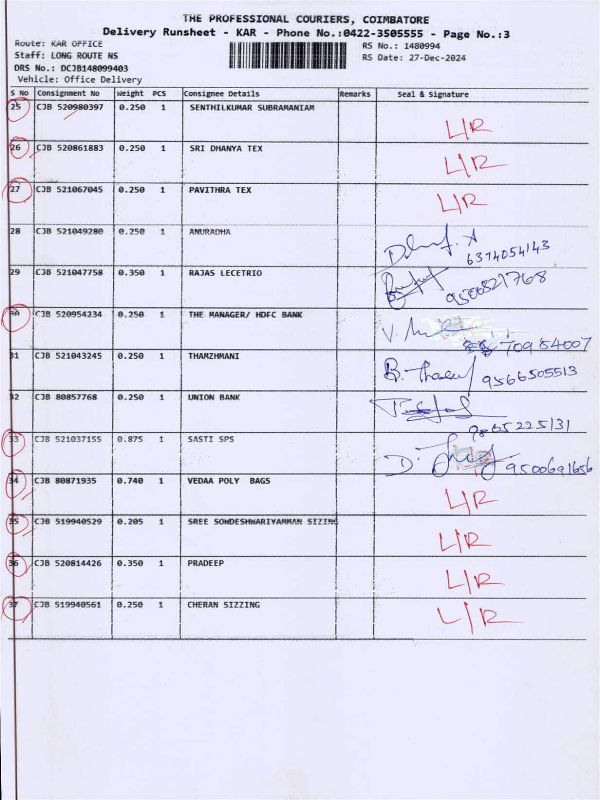 THE PROFESSIONAL COURIERS, COIMBATORE
Delivery Runsheet - KAR - Phone No.:0422-3505555 - Page No.:3
Route: KAR OFFICE
Staff: LONG ROUTE NS
DRS No.: DCJB148099403
Vehicle: Office Delivery
RS No.: 1480994
RS Date: 27-Dec-2024
S No Consignment No Weight PCS Consignee Details Remarks Seal & Signature
25 CJB 520980397 0.250 1 SENTHILKUMAR SUBRAMANIAM L/R
26 CJB 520861883 0.250 1 SRI DHANYA TEX L/R
27 CJB 521067045 0.250 1 PAVITHRA TEX L/R
28 CJB 521049280 0.250 1 ANURADHA
6374054143
29 CJB 521047758 0.350 1 RAJAS LECETRIO
9500821768
30 CJB 520954234 0.250 1 THE MANAGER/ HDFC BANK V.
70984007
31 CJB 521043245 0.250 1 THAMZHMANI
9566505513
32 CJB 80857768 0.250 1 UNION BANK
33 CJB 521037155 0.875 1 SASTI SPS D.
9500691656
34 CJB 80871935 0.740 1 VEDAA POLY BAGS L/R
35 CJB 519940529 0.205 1 SREE SOWDESHWARIYAMMAN SIZING L/R
36 CJB 520814426 0.350 1 PRADEEP L/R
37 CJB 519940561 0.250 1 CHERAN SIZZING L/R